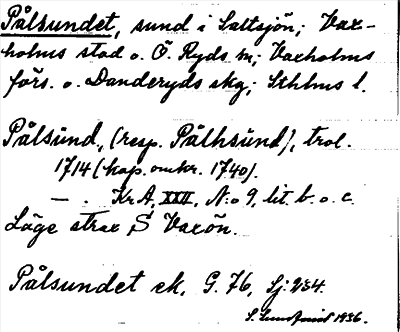 Pålsundet, sund i Saltsjön; Vax-
holms stad o. Ö. Ryds sn; Vaxholms
förs. o. Danderyds skg; Sthlms l.
Pålsund, (resp. Pålhsund), trol.
1714 (kop. omkr. 1740).
— . KrA, XXII, N:o 9, lit. b. o. c.
Läge strax S Vaxön.
Pålsundet ek, G. 76, Sj: 234.
S. 1936.